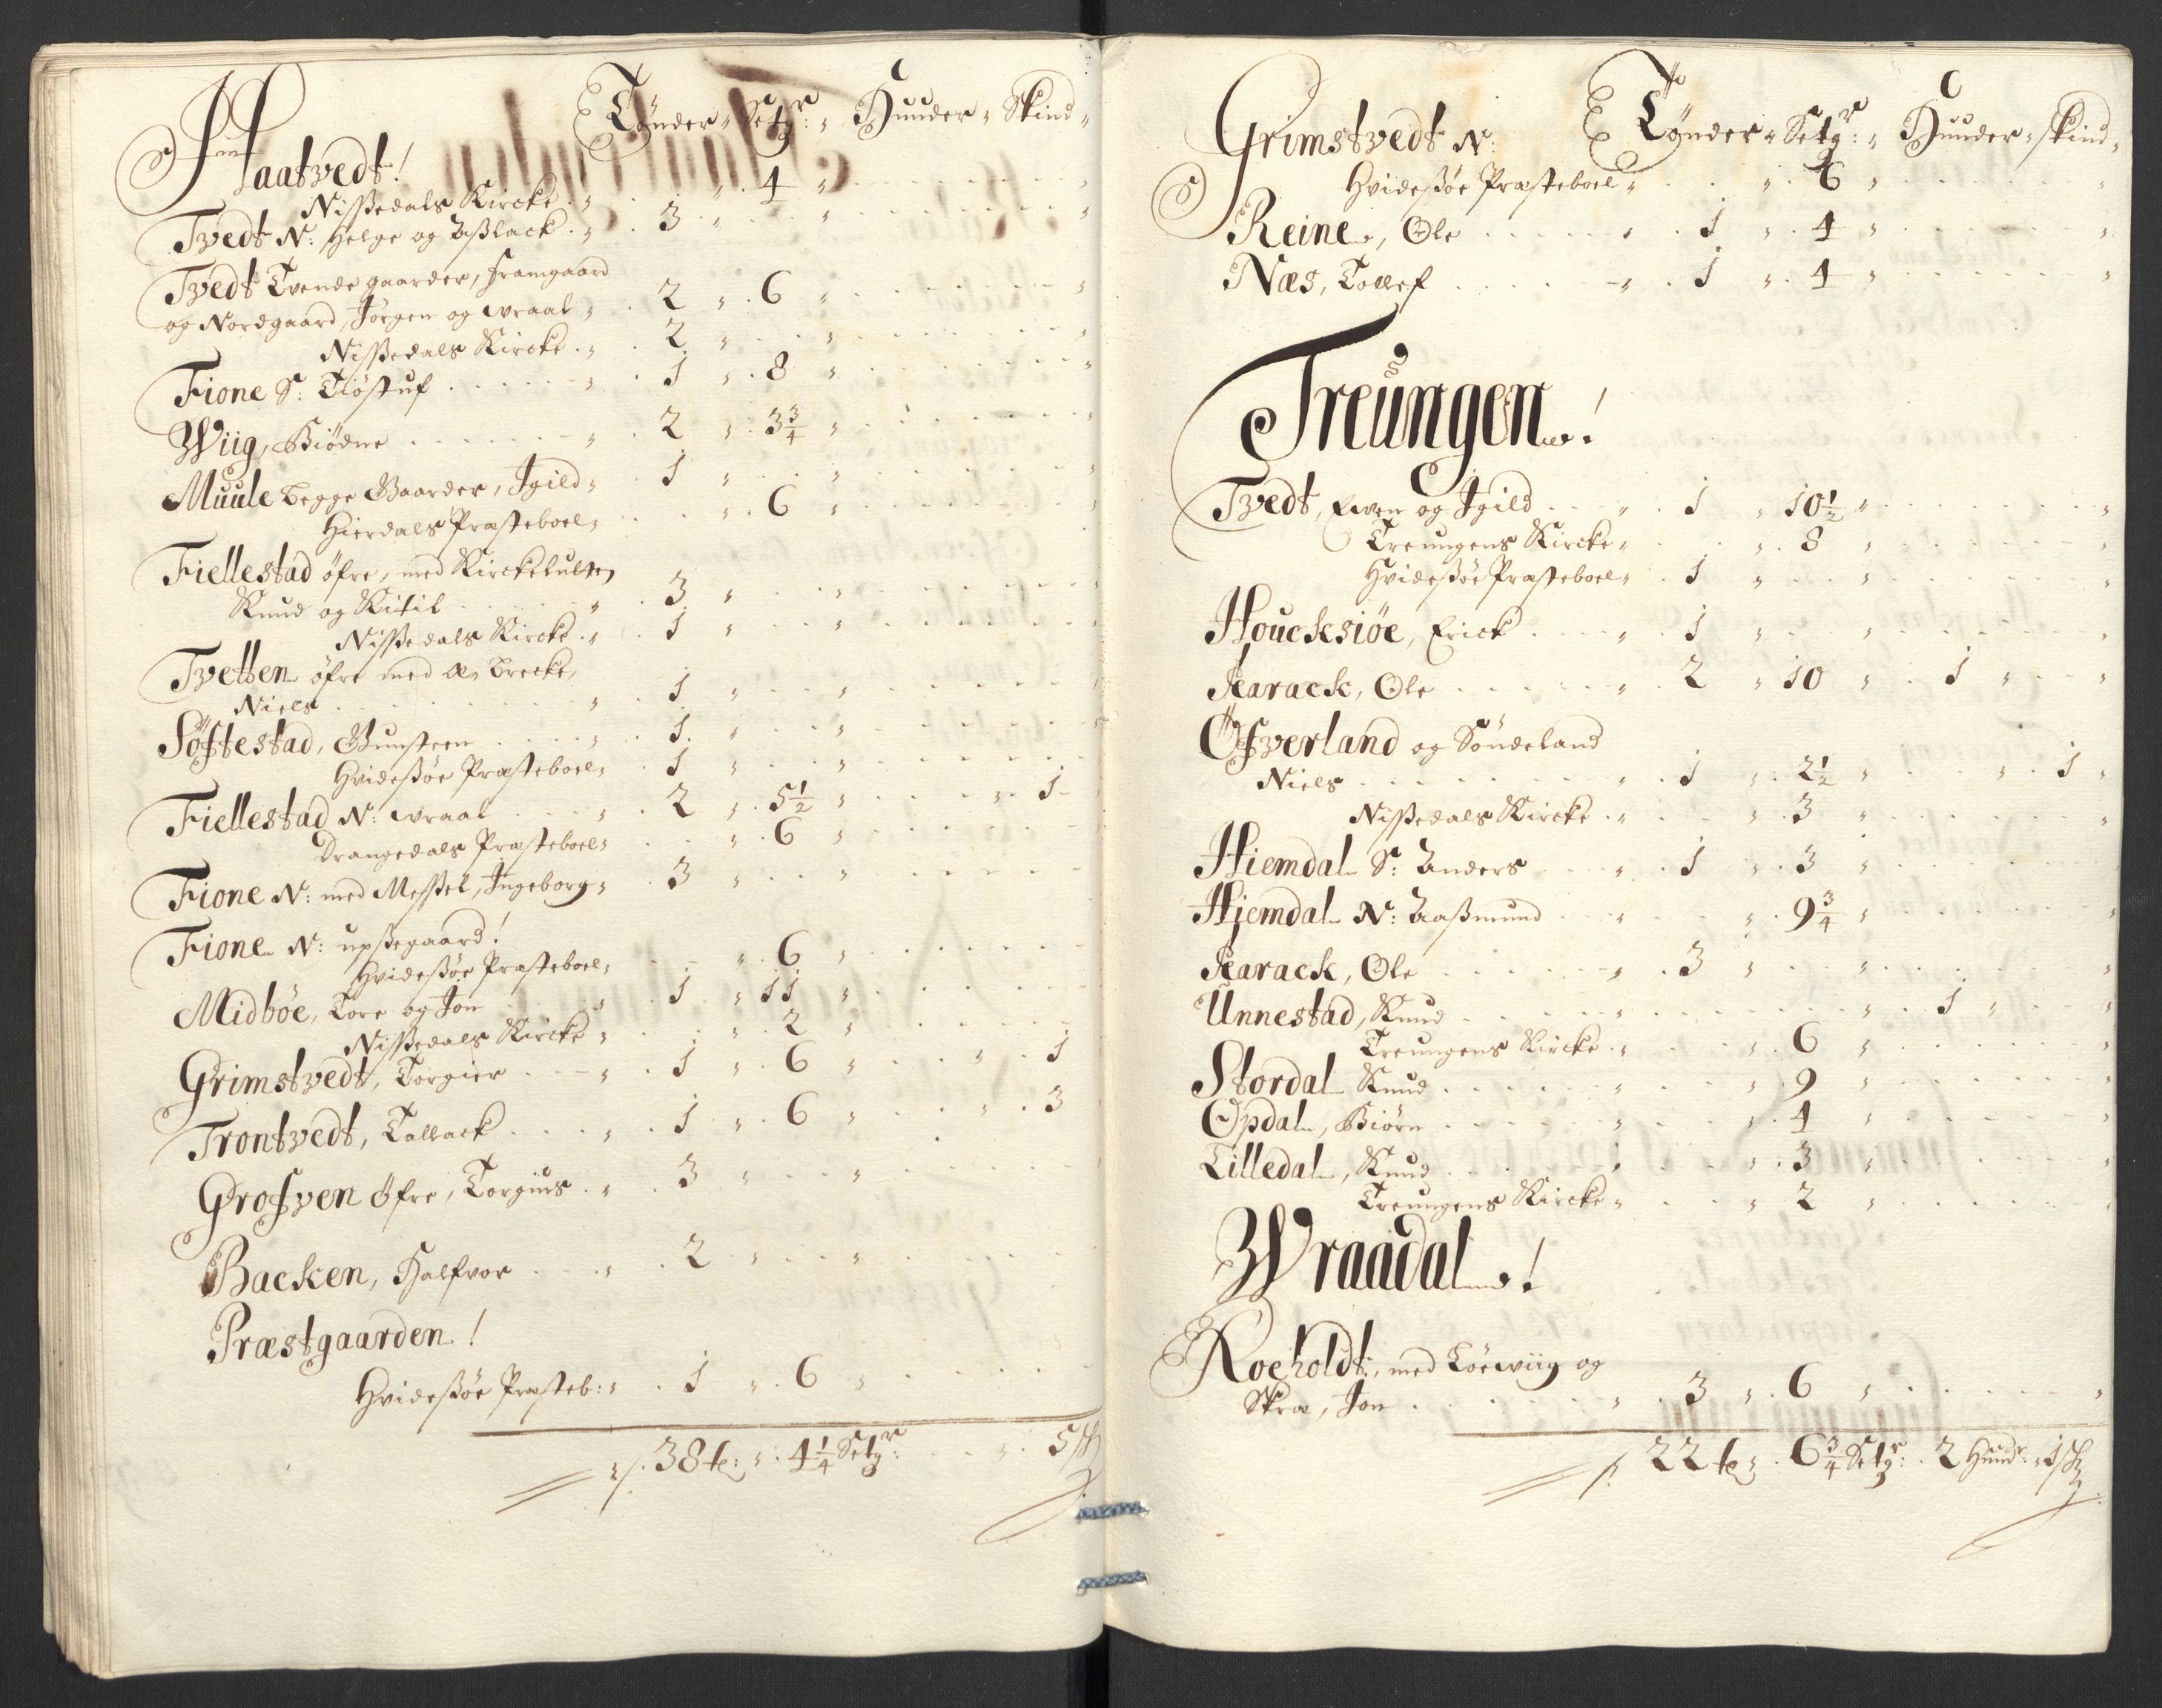 Tønder „ Setgr: „ Huuder „ Skind „
Haatvedt!
Nissedals Kircke „ . „ . 4 „
Tvedt N: Helge og Aslack . „ . 3 „ „
Tvedt Tvende gaarder, Framgaard
og Nordgaard, Jörgen og wraal „ . 2 „ . 6 „
Nissedals Kircke . „ . 2 „ „
Fione S: Tiöstuf . . . . „ . 1 „ . 8 „
Wiig, Biödne . . . . „ . 2 „ . 3 3/4 „
Muule begge Gaarder, Igild „ . 1 „ „
Hierdals Præsteboel „ . . „ . 6 „
Fiellestad öfre, med Kirckelulten
Knud og Kitil . . . „ . 3 „ „
Nissedals Kircke . „ . 1 „ „
Tvetten öfre med Brecke,
Niels . . . . „ . 1 „ „
Söftestad, Gunsteen . . . „ . 1 „ „
Hvidessöe Præsteboel „ . 1 „ „
Fiellestad N: wraal . . . „ . 2 „ . 5 1/2 „ . . „ . 1
Drangedals Præsteboel „ . . „ . 6 „
Fione N: med Messel, Ingeborg „ . 3 „ „
Fione N: upsegaard!
Hvidessöe Præsteboel „ . . „ . 6 „
Midböe, Tore og Jon . . . „ . 1 „ 11 „
Nissedals Kircke „ . . „ . 2 „
Grimstvedt, Torgier . . „ . 1 „ . 6 „ . . „ . 1
Trontvedt, Tallack . . . „ . 1 „ . 6 „ . . „ . 3
Grofven öfre, Torgius . „ . 3 „ „
Backen, Halfvor . . . „ . 2 „ „
Præstgaarden!
Hvidessöe Præsteb: „ . 1 „ . 6 „
38 t: „ . 4 1/4 Setgr: . . „ . 5 sk
Tønder „ Setgr: „ Huuder „ skind „
Grimstvedt N:
Hvidessöe Præsteboel „ . . „ . 6 „
Reine, Ole . . . . „ . 1 „ . 4 „
Næs, Tollef . . . . „ . 1 „ . 4 „
Treungen!
Tvedt, Even og Igild . . „ . 1 „ 10 1/2 „
Treungens Kircke „ . . „ . 8 „
Hvidessöe Præsteboel „ . 1 „ „
Houcksiöe, Erick . . . „ . 1 „ „
Karack, Ole . . . . „ . 2 „ 10 „ . 1 „
Öfverland og Söndeland
Niels . . . . „ . 1 „ . 2 1/2 „ . . „ . 1 „
Nissedals Kircke . „ . . „ . 3 „
Hiemdal S: Anders . . „ . 1 „ . 3 „
Hjemdal N: Aasmund . . „ . . „ . 9 3/4 „
Karack, Ole . . . . „ . 3 „ „
Unnestad, Knud . . . . „ . . . „ . 1 „
Treungens Kircke . „ . . „ . 6 „
Stordal Knud . . . . „ . . „ . 9 „
Opdal, Biörn . . . . „ . . „ . 4 „
Lilledal, Knud . . . . „ . . „ . 3 „
Treungens Kircke „ . . „ . 2 „
Wraadal!
Roeholdt, med Löewiig og
Skræ, Jon . . . . „ . 3 „ . 6 „
22 t: . 6 3/4 Setgr: . 2 Hudr: „ 1 sk